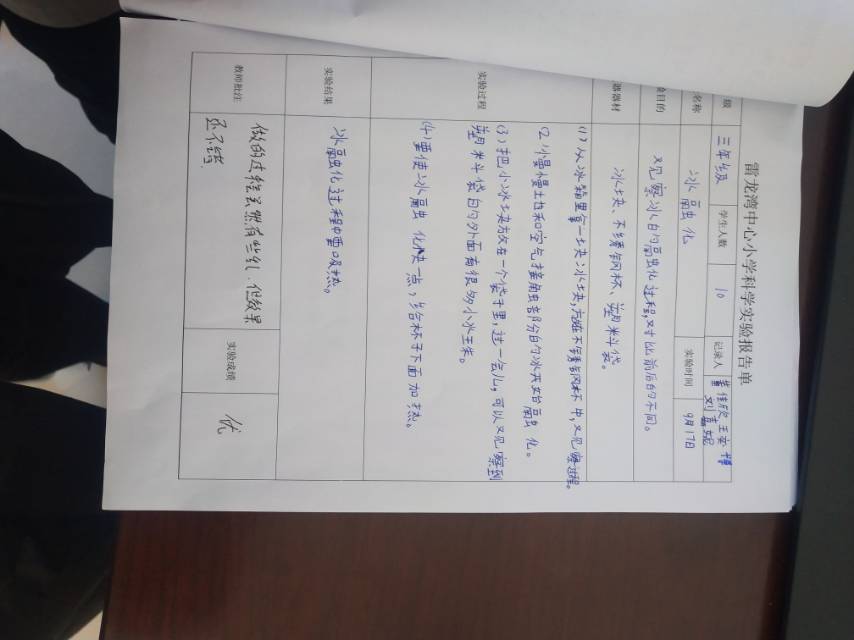 雷龙湾中心小学科学实验报告单
级 三年级 学生人数 10 记录人 佳欣 王奕
刘
名称 冰融化 实验时间 9月17日
目的 观察冰的融化过程,对比前后的不同。
器材 冰块、不锈钢杯、塑料袋。
实验过程
(1)从冰箱里拿一块冰块,放在不锈钢杯中,观察过程。
(2)慢慢地和空气接触部分的冰开始融化。
(3)把小冰块放在一个袋子里,过一会儿,可以观察到
塑料袋的外面有很多小水珠。
(4)要使冰融化快一点,给杯子下面加热。
实验结果 冰融化过程中要吸热。
教师批注
做的过程虽然有些乱.但效果
还不错.
实验成绩 优